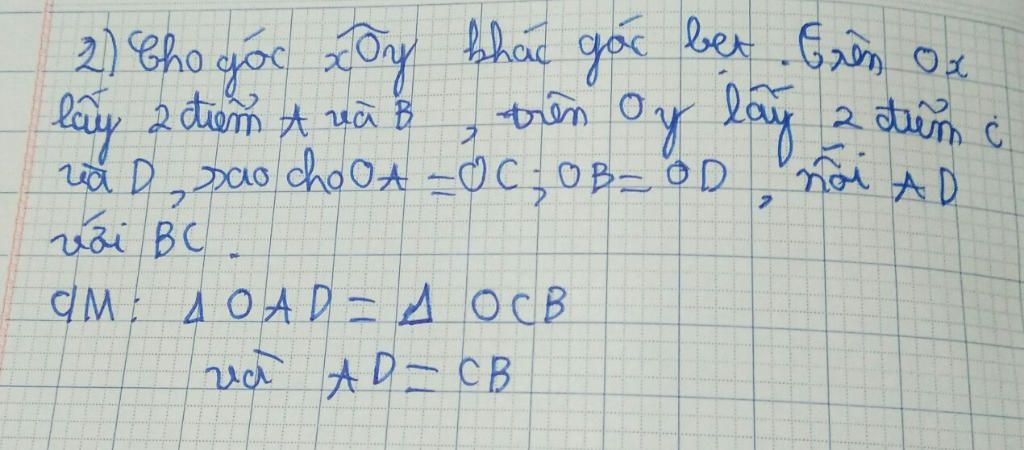 2) Cho góc xOy khác góc bẹt. Trên Ox
lấy 2 điểm A và B, trên Oy lấy 2 điểm C
và D, sao cho OA = OC; OB = OD, nối AD
với BC.
CM: Δ OAD = Δ OCB
và AD = CB